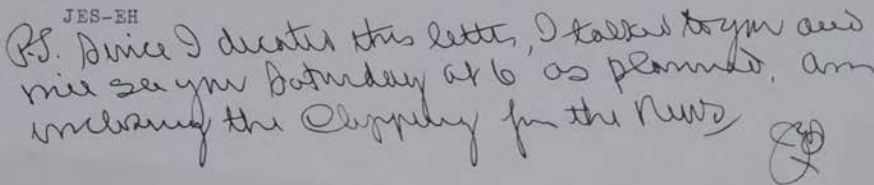 JES-EH
P.S. Since I dicated this letter, I talked to you and
will see you Saturday at 6 as planned. Am
inclosing the Clipping from the News